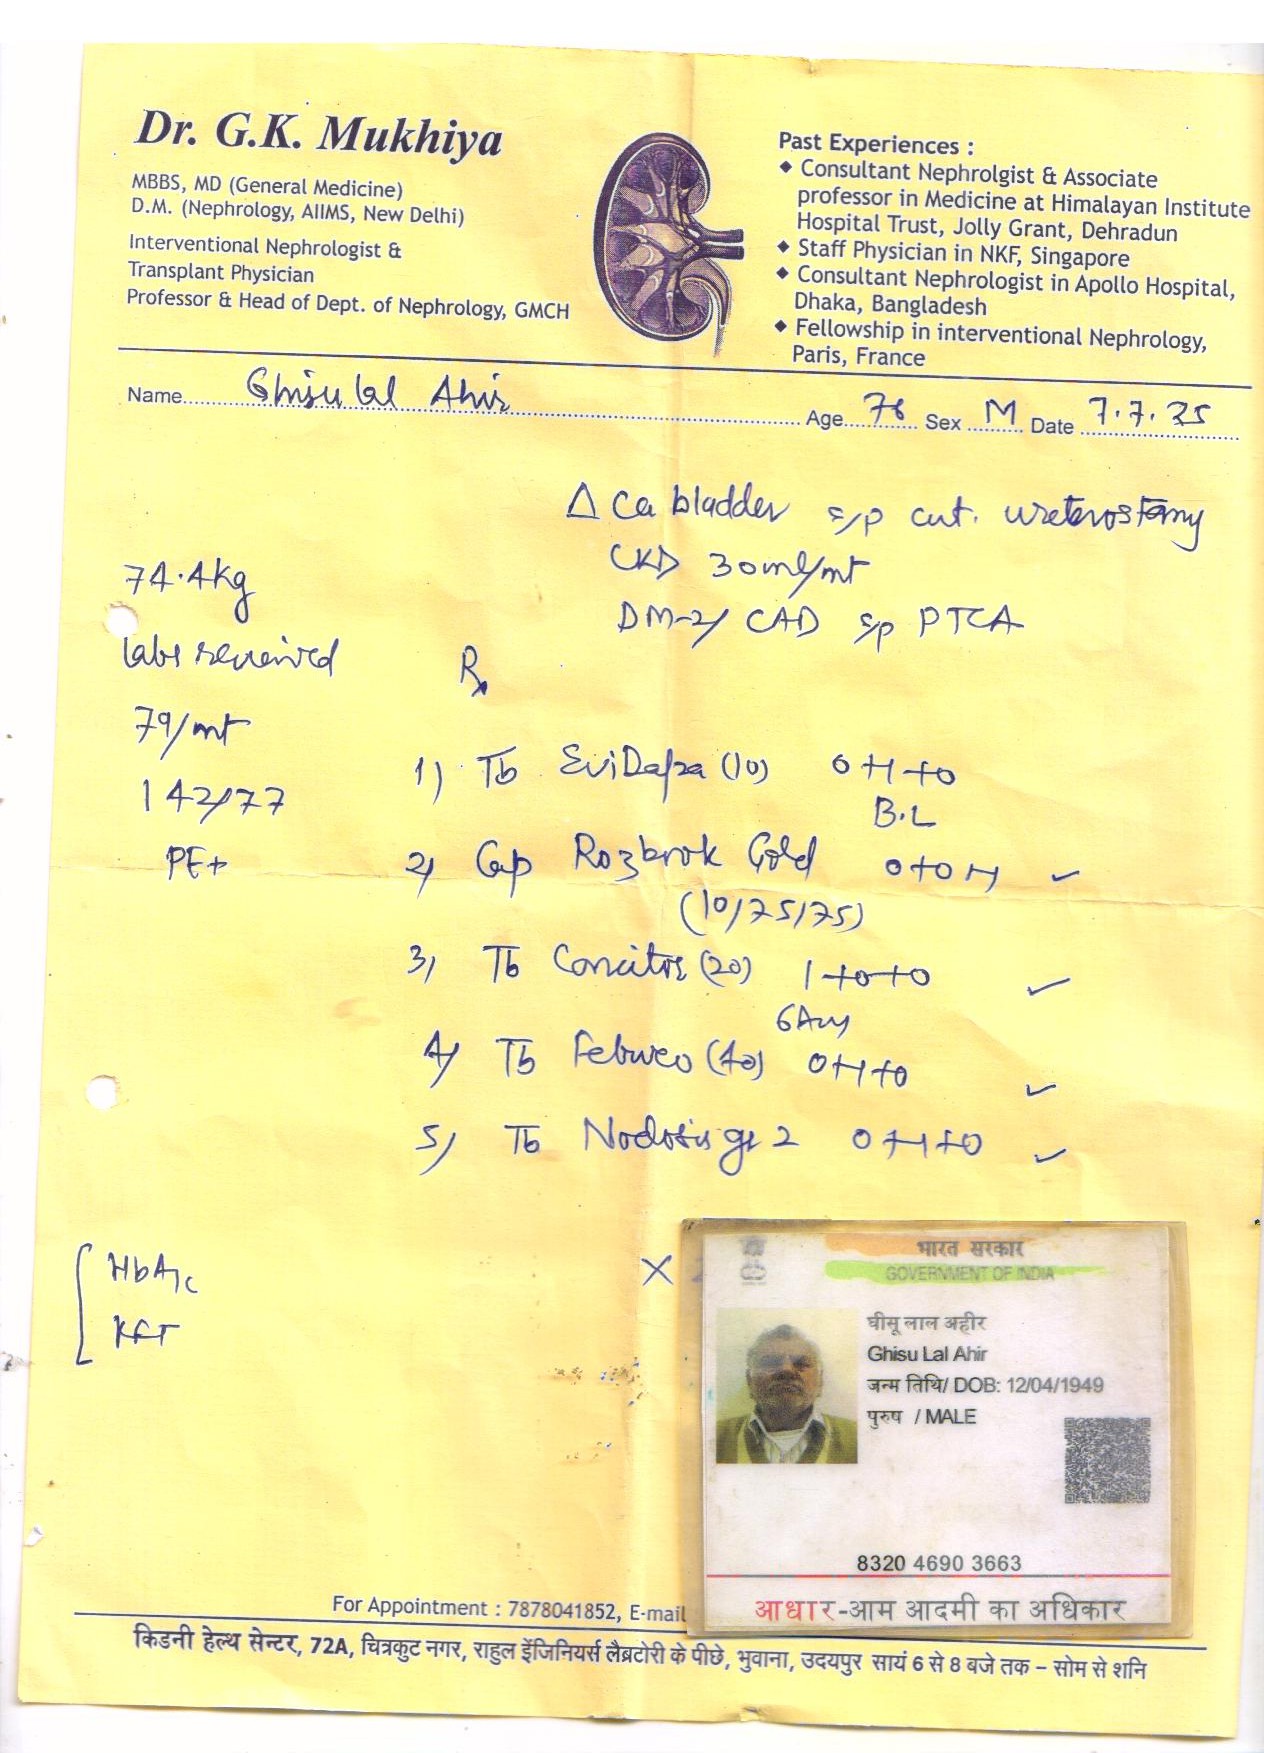 Dr. G.K. Mukhiya
MBBS, MD (General Medicine)
D.M. (Nephrology, AIIMS, New Delhi)
Interventional Nephrologist &
Transplant Physician
Professor & Head of Dept. of Nephrology, GMCH
Past Experiences :
◆ Consultant Nephrolgist & Associate
professor in Medicine at Himalayan Institute
Hospital Trust, Jolly Grant, Dehradun
◆ Staff Physician in NKF, Singapore
◆ Consultant Nephrologist in Apollo Hospital,
Dhaka, Bangladesh
◆ Fellowship in interventional Nephrology,
Paris, France
Name Ghisu lal Ahir Age 76 Sex M Date 7.7.25
Δ Ca bladder s/p cut. ureterostomy
CKD 30ml/mt
DM-2/ CAD s/p PTCA
74.4kg
labs reviewed
79/mt
142/77
PE+
Rx
1) Tb EviDapa (10) 0+1+0
B.L
2) Cap Rozbrok Gold 0+0+1 ✓
(10/75/75)
3) Tb (20) 1+0+0 ✓
4) Tb (40) 0+1+0 ✓
5) Tb Nodosis gr 2 0+1+0 ✓
HbA1c
KFT
X
भारत सरकार
GOVERNMENT OF INDIA
घीसू लाल अहीर
Ghisu Lal Ahir
जन्म तिथि/ DOB: 12/04/1949
पुरुष / MALE
8320 4690 3663
आधार-आम आदमी का अधिकार
For Appointment : 7878041852, E-mail
किडनी हेल्थ सेन्टर, 72A, चित्रकुट नगर, राहुल इंजिनियर्स लैबरटोरी के पीछे, भुवाना, उदयपुर सायं 6 से 8 बजे तक – सोम से शनि